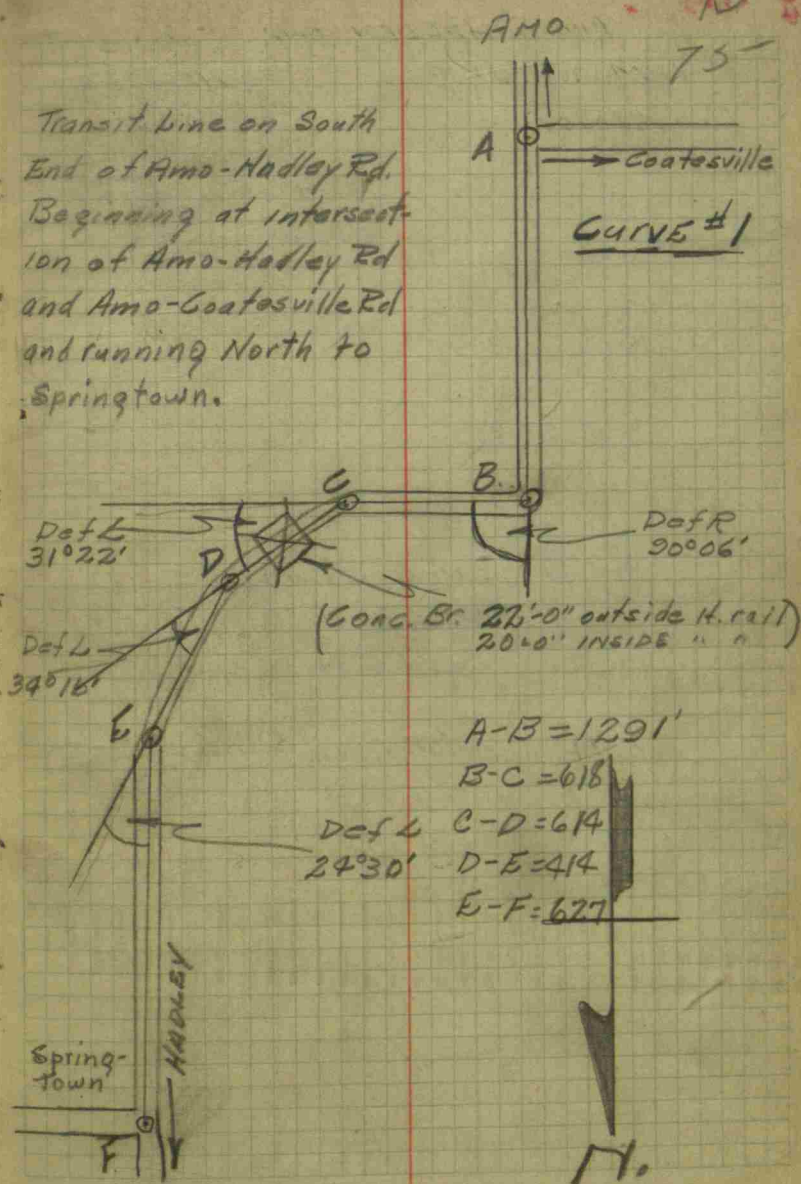 AMO
75
Transit Line on South
End of Amo-Hadley Rd.
Beginning at intersect-
ion of Amo-Hadley Rd
and Amo-Coatesville Rd
and running North to
Springtown.
A
Coatesville
CURVE #1
C
B
Def L
31°22'
D
Def R
90°06'
(Conc. Br. 22'-0" outside H. rail)
20'-0" INSIDE " "
Def L
34°16'
E
A-B = 1291'
B-C = 618
C-D = 614
D-E = 414
E-F = 627
Def L
24°30'
HADLEY
Spring-
Town
F
N.